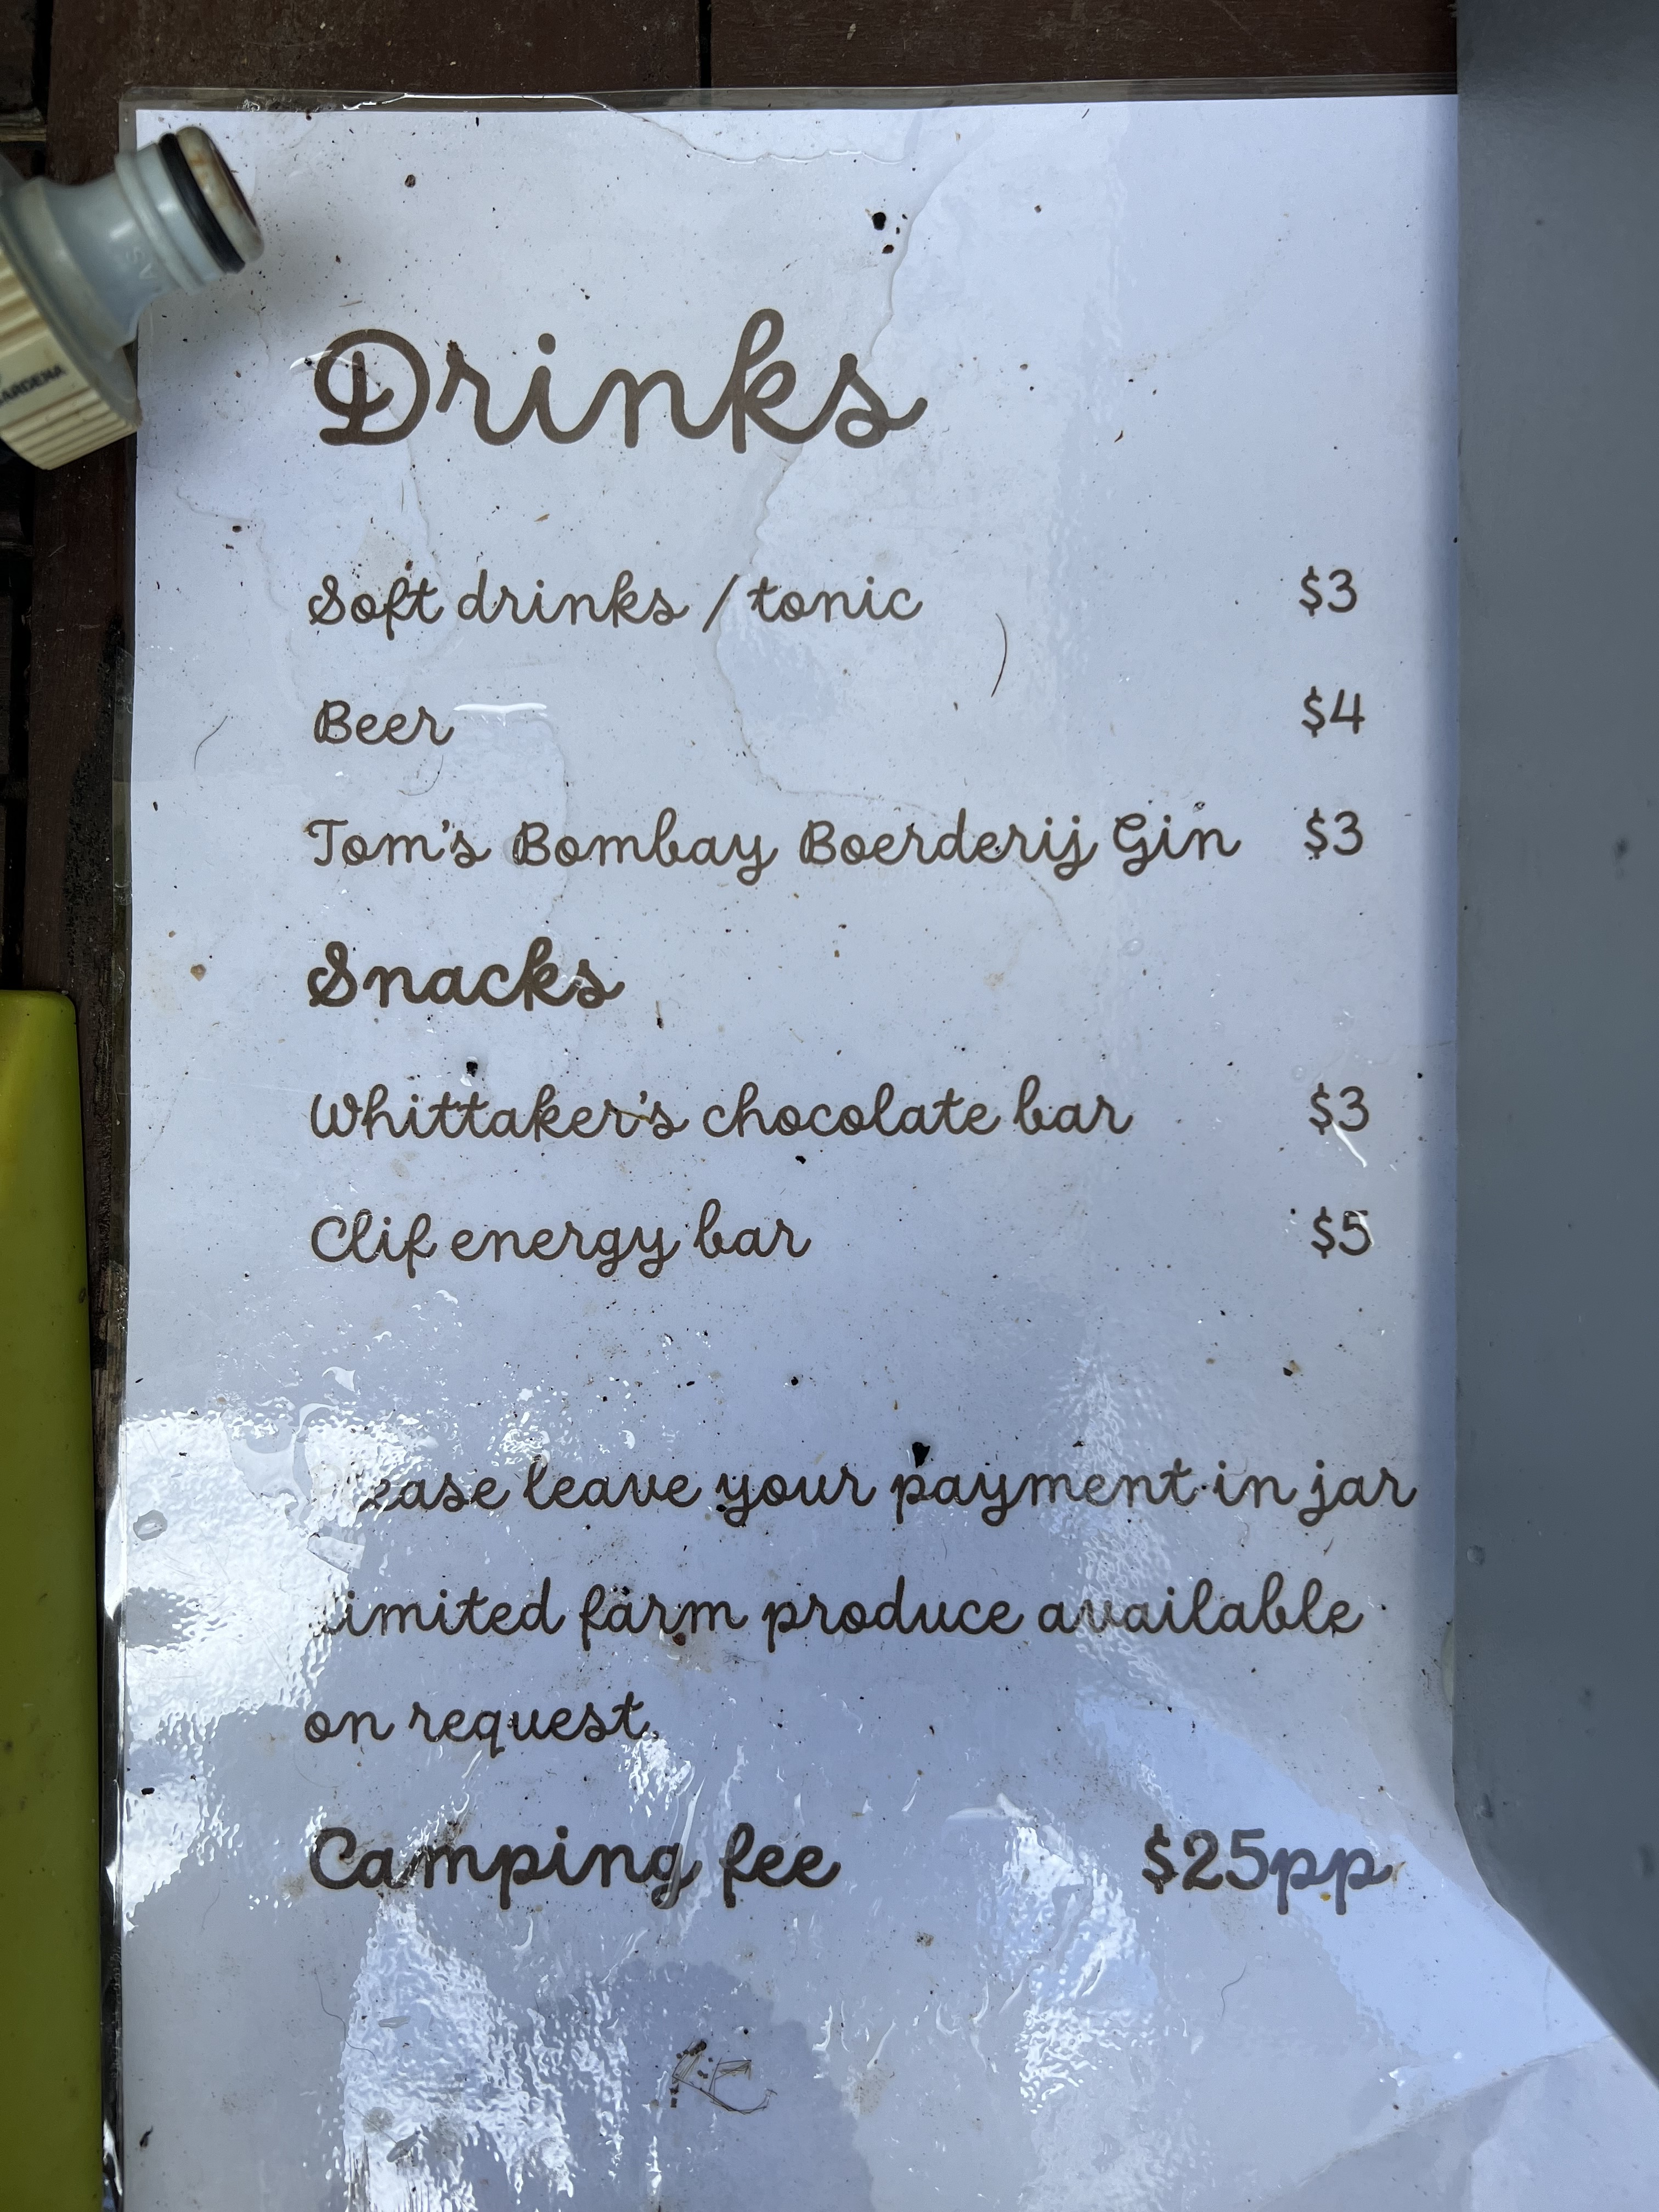 GARDENA
Drinks
Soft drinks / tonic $3
Beer $4
Tom's Bombay Boerderij Gin $3
Snacks
Whittaker's chocolate bar $3
Clif energy bar $5
Please leave your payment in jar
Limited farm produce available
on request.
Camping fee $25pp